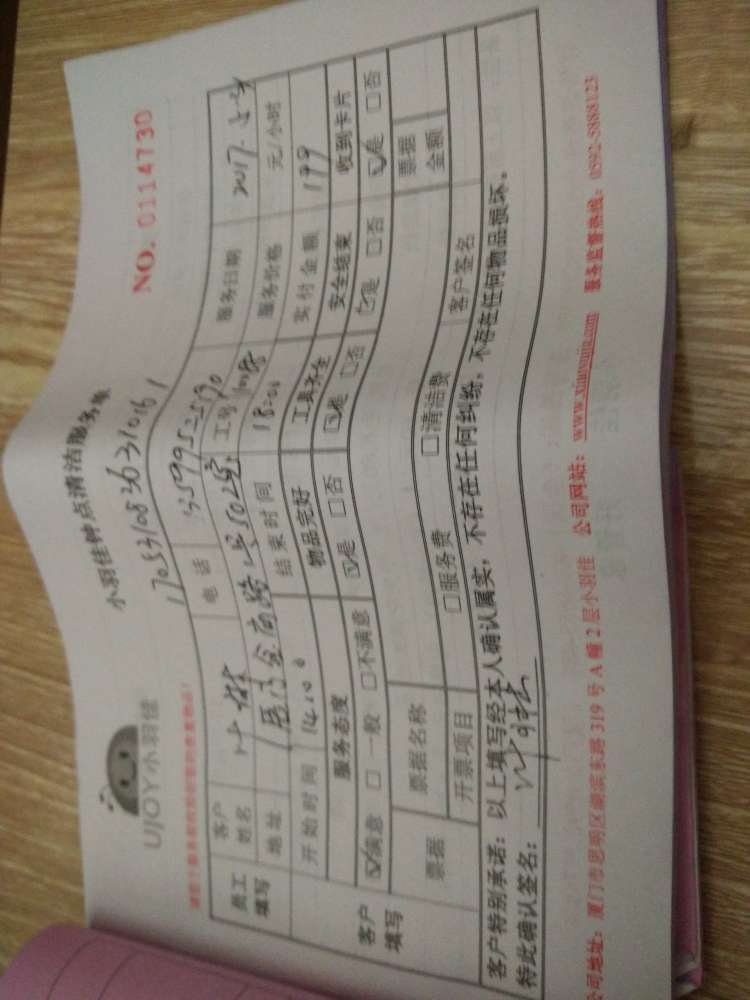 UJOY小羽佳
小羽佳钟点清洁服务单
NO. 0114730
1705310836310161
员工填写
客户姓名 叶 电话 服务日期 2017.
地址 502室 工号 服务价格 元/小时
开始时间 14:00 结束时间 18:00 实付金额 199
客户填写
服务态度 物品完好 工具齐全 安全结束 收到卡片
☑满意 □一般 □不满意 ☑是 □否 ☑是 □否 ☑是 □否 ☑是 □否
票据 票据名称 票据金额
开票项目 □服务费 □清洁费 客户签名
客户特别承诺：以上填写经本人确认属实，不存在任何纠纷，不存在任何物品损坏。
特此确认签名：
公司地址：厦门市思明区湖滨东路319号A幢2层小羽佳 公司网站：www.xiaoyujia.com 服务监督热线：0592-5888123